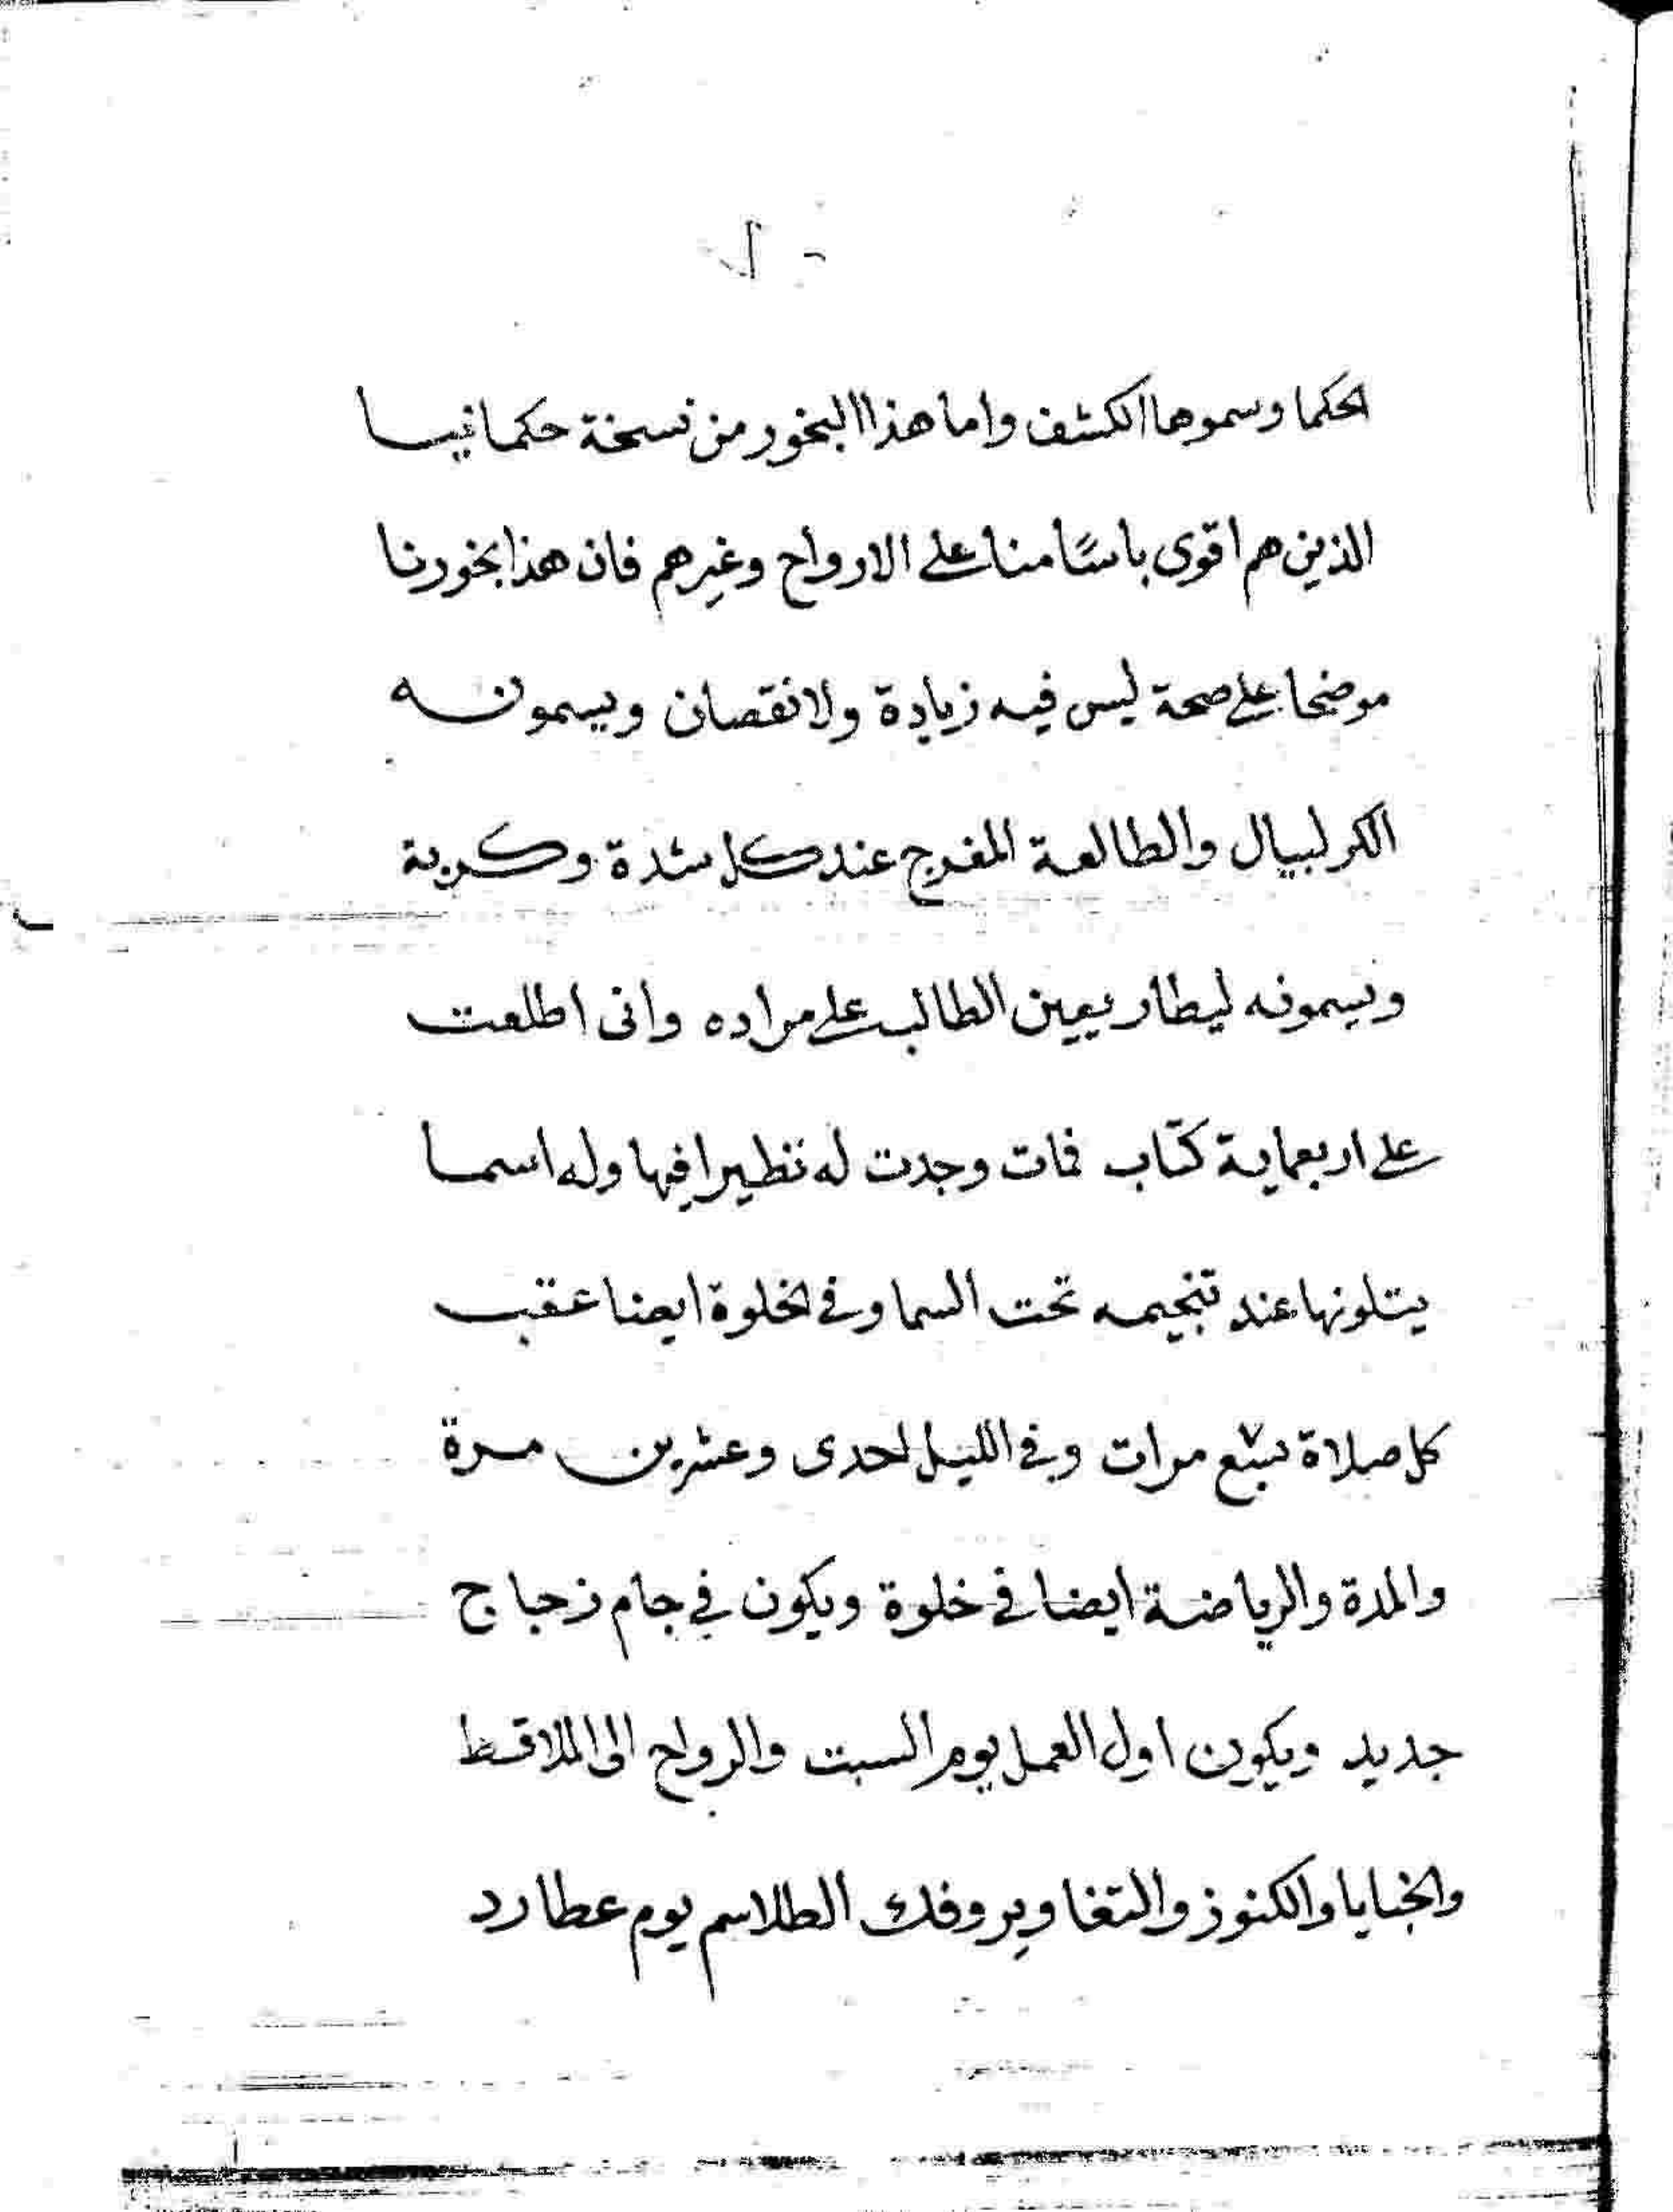 الحكما وسموها الكشف واما هذا البخور من نسخة حكمانيسا
الذين هم اقوى باسًا منا على الارواح وغيرهم فان هذا بخورنا
موضحا على صحة ليس فيه زيادة ولا نقصان ويسمونه
الكرلبيال والطالعة المفرج عند كل شدة وكربة
ويسمونه ليطار يعين الطالب على مراده وانى اطلعت
على اربعماية كتاب فات وجدت له نظيرا فيها وله اسما
يتلونها عند تنجيمه تحت السما وفى الخلوة ايضا عقب
كل صلاة سبع مرات وفي الليل احدى وعشرين مرة
والمدة والرياضة ايضا فى خلوة ويكون في جام زجاج
جديد ويكون اول العمل يوم السبت والرواح الى الملاقط
والخبايا والكنوز والتغاوير وفك الطلاسم يوم عطارد